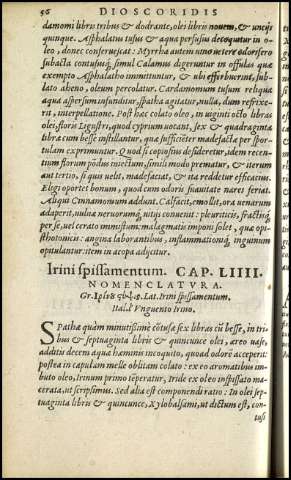 56 DIOSCORIDIS
damomi libris tribus & dodrante, olei libris novem, & uncijs
quinque. Asphalatus tusus & aqua perfusus decoquatur in o-
leo, donec conferuescat: Myrrha autem uino uetere odorifero
subacta contusíq; simul Calamus digeruntur in offulas quæ
exempto Asphalatho immittuntur, & ubi efferbuerint, sub-
lato aheno, oleum percolatur. Cardamomum tusum reliqua
aqua aspersum infunditur, spatha agitatur, nulla, dum refrixe-
rit, interpellatione. Post hac colato oleo, in uiginti octo libras
olei, floris Ligustri, quod cyprum uocant, sex & quadraginta
libræ cum besse instillantur, quæ sufficiēter madefactæ per spor-
tulam exprimuntur. Quod si copiosius desideretur, idem recen-
tium florum pōdus iniectum, simili modo prematur, & iterum
aut tertio, si quis uelit, madefaciat, & ita reddetur efficacius.
Eligi oportet bonum, quod cum odoris suauitate nares feriat.
Aliqui Cinnamomum addunt. Calfacit, emollit, ora uenarum
adaperit, vuluæ neruorumq; uitijs conuenit: pleuriticis, fractísq;
per se, uel cerato immistum: malagmatis imponi solet, quæ opi-
sthotonicis: angina laborantibus, inflammationíq; inguinum
opitulantur. item in acopa adijcitur.
Irini spissamentum. CAP. LIIII.
NOMENCLATVRA.
Lat. Irini spissamentum.
Ital. Vnguento Irino.
SPathæ quàm minutissimè cōtusæ sex libras cū besse, in tri-
bus & septuaginta libris & quincunce olei, æreo uase,
additis decem aquæ heminis incoquito, quoad odorē acceperit:
postea in capulam melle oblitam colato: ex eo aromatibus im-
buto oleo, Irinum primo tēperatur, Iride ex oleo inspissato ma-
cerata, ut scripsimus. Sed alia est componendi ratio: In olei sep-
tuaginta libris & quincunce, Xylobalsami, ut dictum est, con-
tusi